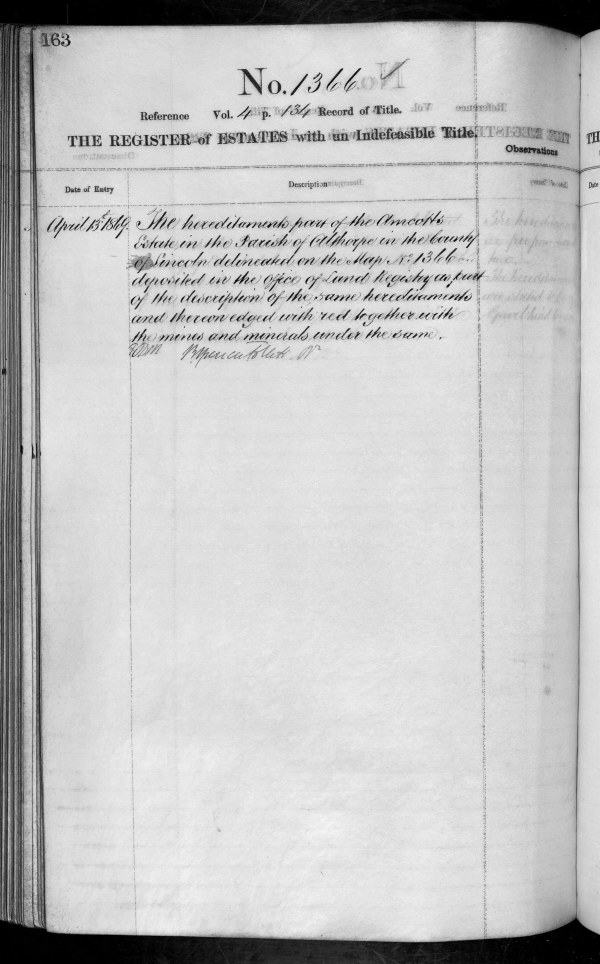 163
No. 1366
Reference Vol. 4 p. 134 Record of Title.
THE REGISTER of ESTATES with an Indefeasible Title.
Observations
Date of Entry
Description
April 13th 1869.
The hereditaments part of the Amcotts
Estate in the Parish of Althorpe in the County
of Lincoln delineated on the Map No. 1366
deposited in the Office of Land Registry as part
of the description of the same hereditaments
and thereon edged with red together with
the mines and minerals under the same.